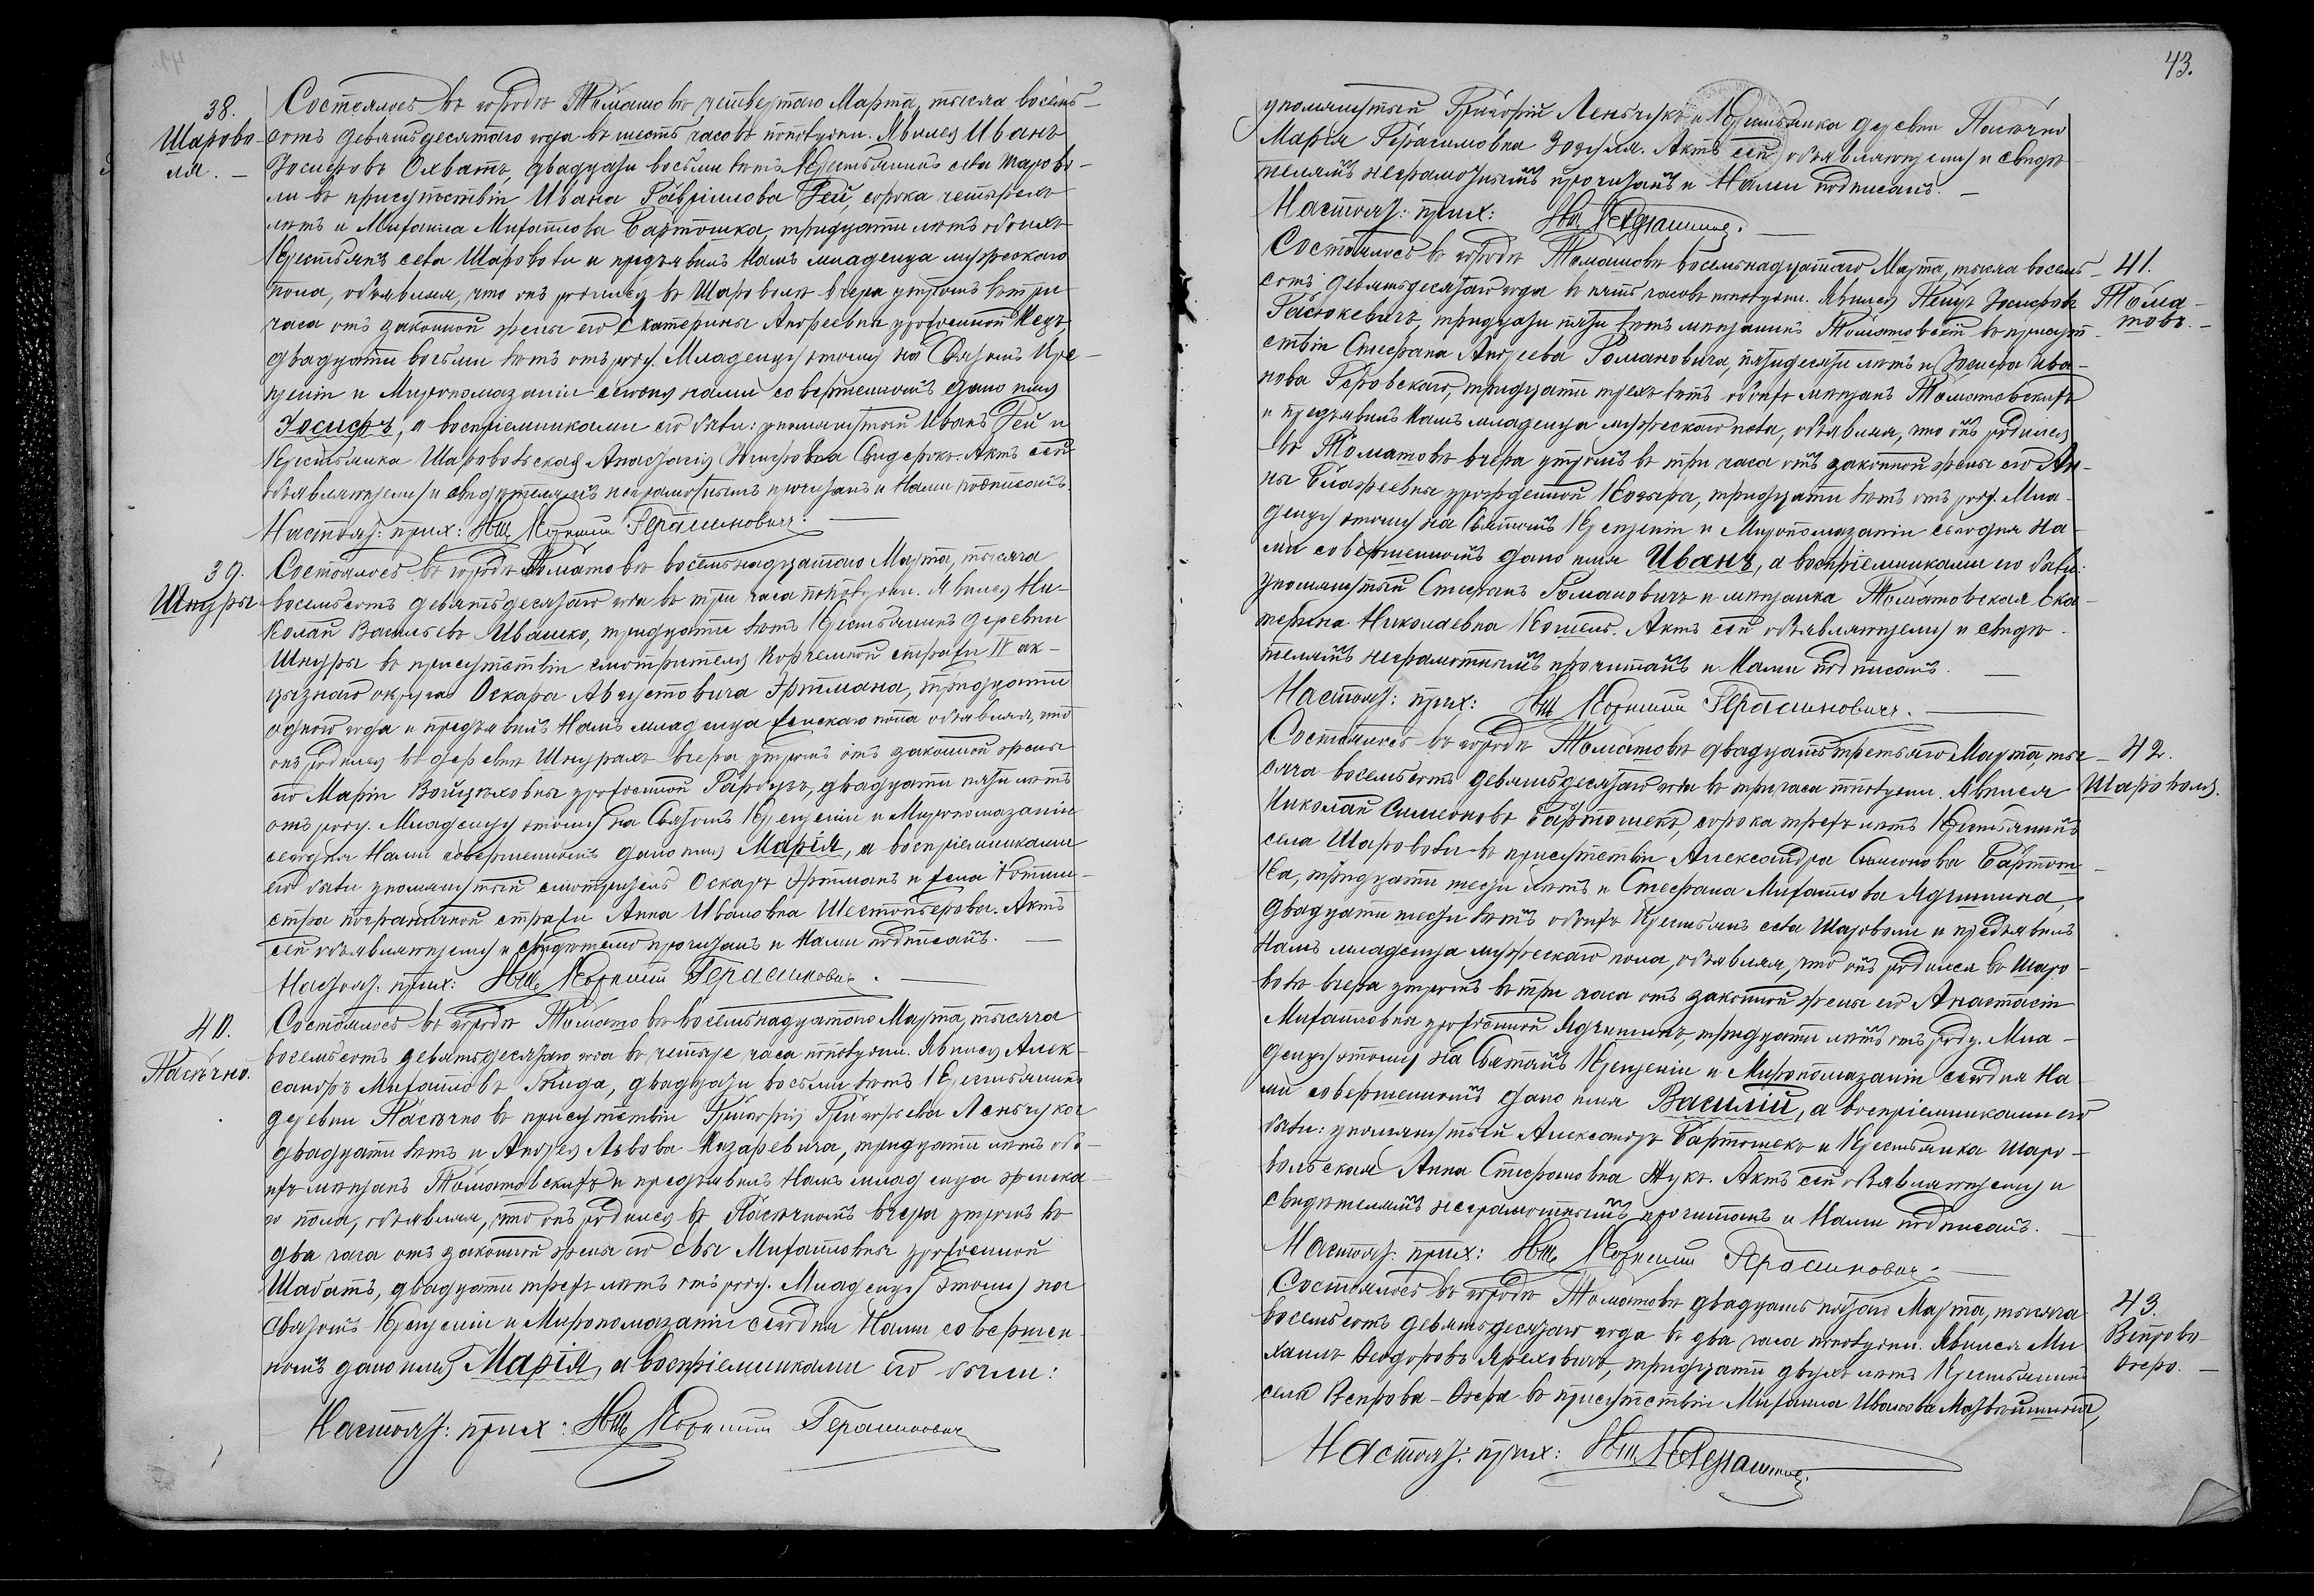 38.
Шарово-
ля. —
Состоялось въ городѣ Томашовѣ четвертаго Марта, тысяча восемь-
сотъ девятьдесятаго года въ шесть часовъ пополудни. Явился Иванъ
Іосифовъ Охватъ, двадцати восьми лѣтъ Крестьянинъ села Шарово-
ли въ присутствіи Ивана Гавріилова Гей, сорока четырехъ
лѣтъ и Михаила Михайлова Бартошка, тридцати лѣтъ обоихъ
Крестьянъ села Шароволи и предъявилъ Намъ младенца мужескаго
пола, объявляя, что онъ родился въ Шароволѣ вчера утромъ въ три
часа отъ законной жены его Екатерины Андреевны урожденной
двадцати восьми лѣтъ отъ роду. Младенцу этому на Святомъ Кре-
щеніи и Миропомазаніи сегодня нами совершенномъ дано имя
Іосифъ, а воспріемниками его были: упомянутый Иванъ Гей и
Крестьянка Шаровольская Анастасія Іосифовна Актъ сей
объявляющему и свидѣтелямъ неграмотнымъ прочитанъ и Нами подписанъ.
Настоят: прих: Свщ. Корнилій Герасимовичъ. —
39.
Шнуры
Состоялось въ городѣ Томашовѣ восемьнадцатаго Марта, тысяча
восемьсотъ девятьдесятаго года въ три часа пополудни. Явился Ни-
колай Васильевъ Ивашко, тридцати лѣтъ Крестьянинъ деревни
Шнуры въ присутствіи смотрителя Корчемной стражи IV ак-
цызнаго округа Оскара Августовича Эртмана, тридцати
одного года и предъявилъ Намъ младенца женскаго пола объявляя, что
онъ родился въ деревнѣ Шнурахъ вчера утромъ отъ законной жены
его Маріи Войцѣховны урожденной двадцати пяти лѣтъ
отъ роду. Младенцу этому на Святомъ Крещеніи и Миропомазаніи
сегодня Нами совершенномъ дано имя Марія, а воспріемниками
его были упомянутый смотритель Оскаръ Эртманъ и жена
пограничной стражи Анна Ивановна Шестопёрова. Актъ
сей объявляющему и свидѣтелю прочитанъ и Нами подписанъ. —
Настоят: прих: Свщ. Корнилій Герасимовичъ. —
40.
Пасѣчно.
Состоялось въ городѣ Томашовѣ восемьнадцатаго Марта, тысяча
восемьсотъ девятьдесятаго года въ четыре часа пополудни. Явился Алек-
сандръ Михайловъ двадцати восьми лѣтъ Крестьянинъ
деревни Пасѣчно въ присутствіи Григорія Григорьева Леньчука
двадцати лѣтъ и Андрея Львова Назаревича, тридцати лѣтъ обо-
ихъ мѣщанъ Томашовскихъ и предъявилъ Намъ младенца женска-
го пола, объявляя, что онъ родился въ Пасѣчномъ вчера утромъ въ
два часа отъ законной жены его Евы Михайловны урожденной
Шабатъ, двадцати трехъ лѣтъ отъ роду. Младенцу этому на
Святомъ Крещеніи и Миропомазаніи сегодня Нами совершен-
номъ дано имя Марія, а воспріемниками его были:
Настоят: прих: Свщ. Корнилій Герасимовичъ
43.
упомянутый Григорій Леньчукъ и Крестьянка деревни Пасѣчно
Марія Герасимовна Зозуля. Актъ сей объявляющему и свидѣ-
телямъ неграмотнымъ прочитанъ и Нами подписанъ. —
Настоят: прих: Свщ. К Герасимов. —
41.
Тома-
шовъ. —
Состоялось въ городѣ Томашовѣ восемьнадцатаго Марта, тысяча восемь-
сотъ девятьдесятаго года въ пять часовъ пополудни. Явился Петръ Іосифовъ
Гасюкевичъ, тридцати пяти лѣтъ мѣщанинъ Томашовскій въ присут-
ствіи Стефана Андреева Романовича, пятидесяти лѣтъ и Іосифа Ива-
нова Геровскаго, тридцати трехъ лѣтъ обоихъ мѣщанъ Томашовскихъ
и предъявилъ Намъ младенца мужескаго пола, объявляя, что онъ родился
въ Томашовѣ вчера утромъ въ три часа отъ законной жены его Ан-
ны Блажеевны урожденной Козыра, тридцати лѣтъ отъ роду. Мла-
денцу этому на Святомъ Крещеніи и Миропомазаніи сегодня На-
ми совершенномъ дано имя Иванъ, а воспріемниками его были:
упомянутый Стефанъ Романовичъ и мѣщанка Томашовская Ека-
терина Николаевна Кошель. Актъ сей объявляющему и свидѣ-
телямъ неграмотнымъ прочитанъ и Нами подписанъ. —
Настоят: прих: Свщ. Корнилій Герасимовичъ. —
42.
Шароволя.
Состоялось въ городѣ Томашовѣ двадцать третьяго Марта, ты-
сяча восемьсотъ девятьдесятаго года въ три часа пополудни. Явился
Николай Симеоновъ Бартошекъ, сорока трехъ лѣтъ Крестьянинъ
села Шароволи въ присутствіи Александра Симеонова Бартош-
ка, тридцати шести лѣтъ и Стефана Михайлова Ядчишина,
двадцати шести лѣтъ обоихъ Крестьянъ села Шароволи и предъявилъ
Намъ младенца мужескаго пола, объявляя, что онъ родился въ Шаро-
волѣ вчера утромъ въ три часа отъ законной жены его Анастасіи
Михайловны урожденной Ядчишинъ, тридцати лѣтъ отъ роду. Мла-
денцу этому на Святомъ Крещеніи и Миропомазаніи сегодня На-
ми совершенномъ дано имя Василій, а воспріемниками его
были: упомянутый Александръ Бартошекъ и Крестьянка Шаро-
вольская Анна Стефановна Жукъ. Актъ сей объявляющему и
свидѣтелямъ неграмотнымъ прочитанъ и Нами подписанъ. —
Настоят: прих: Свщ. Корнилій Герасимовичъ. —
43.
Вепрово-
Озеро. —
Состоялось въ городѣ Томашовѣ двадцать пятаго Марта, тысяча
восемьсотъ девятьдесятаго года въ два часа пополудни. Явился Ми-
хаилъ Ѳеодоровъ Яреховичъ, тридцати двухъ лѣтъ Крестьянинъ
села Вепрова-Озера въ присутствіи Михаила Иванова
Настоят: прих: Свщ. К Герасимов.